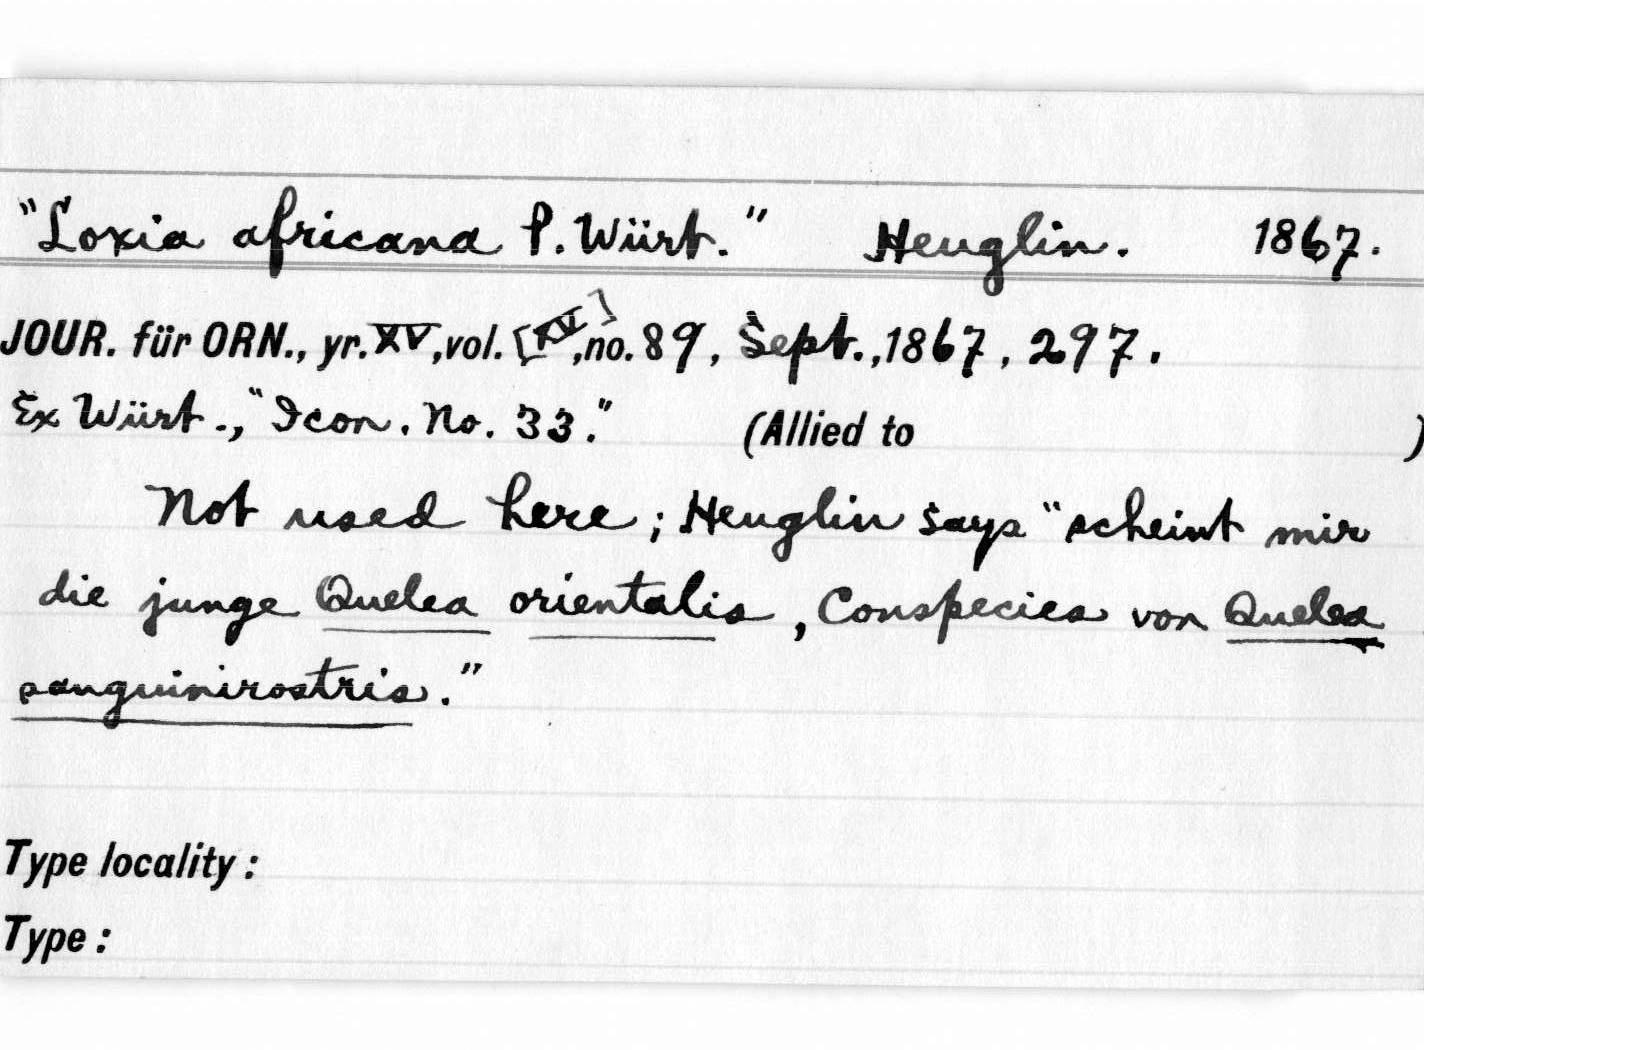 "Loxia africana P. Würt." Heuglin. 1867.
JOUR. für ORN., yr. XV, vol. [XV], no. 89, Sept., 1867, 297.
Ex Würt., "Icon. No. 33." (Allied to )
Not used here; Heuglin says "scheint mir
die junge Quelea orientalis, Conspecies von Quelea
sanguinirostris."
Type locality:
Type: